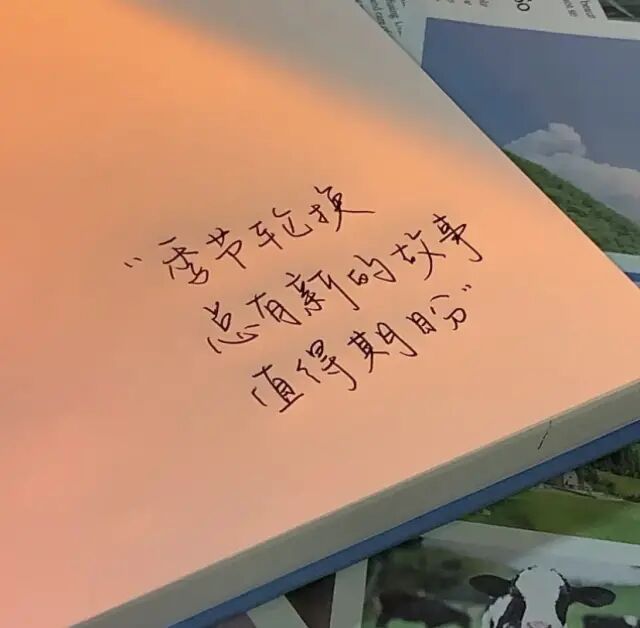 “季节轮换
总有新的故事
值得期盼”
So